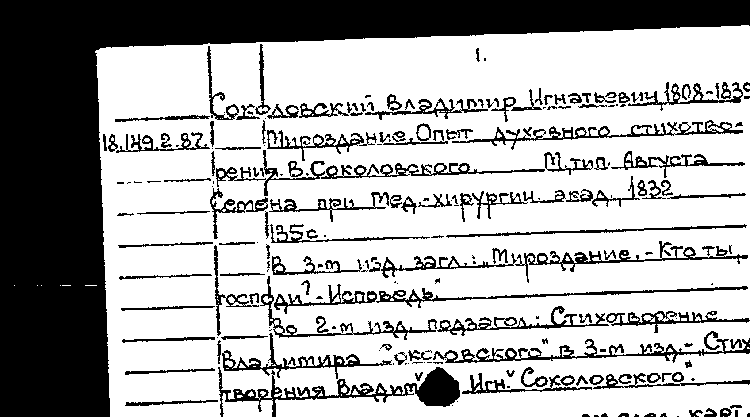 1.
Соколовский, Владимир Игнатьевич, 1808-1839
18.149.2.87. Мироздание. Опыт духовного стихотво-
рения В. Соколовского. М., тип. Августа
Семена при Мед.-хирургич. акад., 1832
135 с.
В 3-м изд. загл.: „Мироздание. - Кто ты,
господи? - Исповедь."
Во 2-м изд. подзагол.: Стихотворение
Владимира Соколовского", в 3-м изд.- „Стих
творения Владим Игн." Соколовского".
карт.